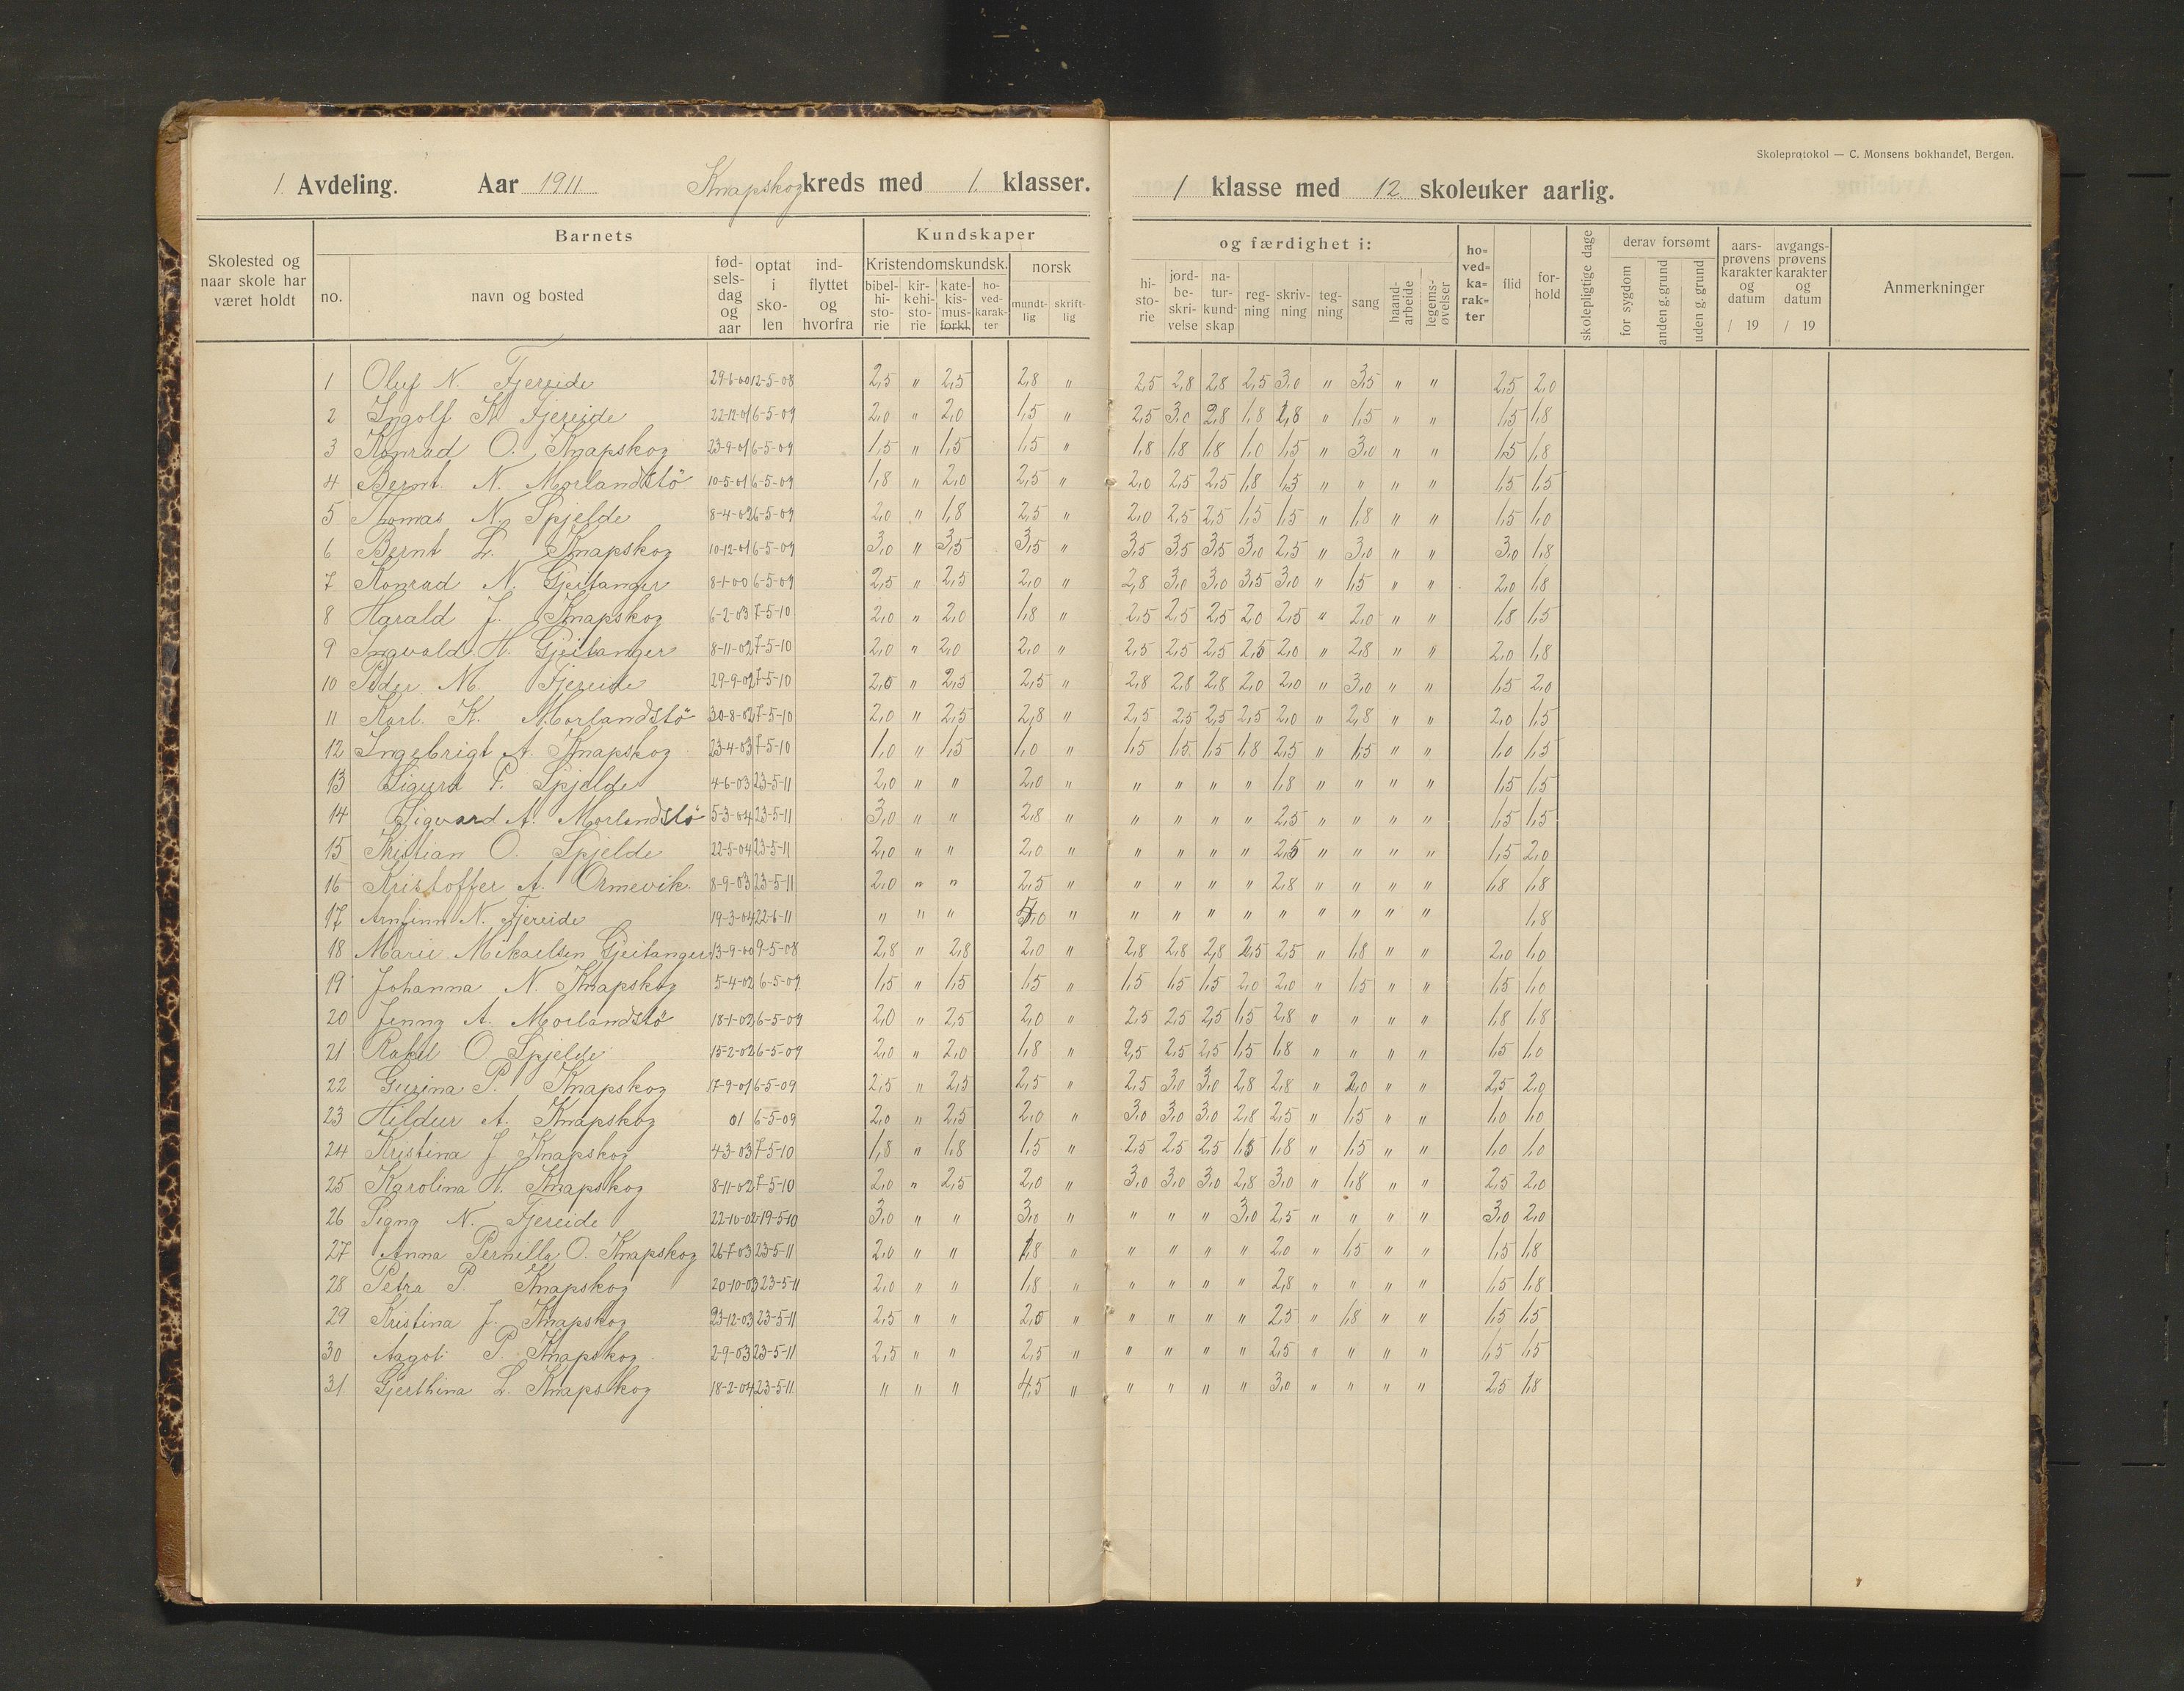 Skoleprotokol — C. Monsens bokhandel, Bergen.
1. Avdeling. Aar 1911 Knapskog kreds med 1. klasser. 1 klasse med 12. skoleuker aarlig.
Skolested og naar skole har været holdt
Barnets
no. navn og bosted fødselsdag og aar optat i skolen indflyttet og hvorfra
Kundskaper og færdighet i:
Kristendomskundsk. norsk
bibelhistorie kirkehistorie katekismus forkl. hovedkarakter mundtlig skriftlig
historie jordbeskrivelse naturkundskap regning skrivning tegning sang haandarbeide legemsøvelser
hovedkarakter flid forhold skolepligtige dage
derav forsømt
for sygdom anden g. grund uden g. grund
aarsprøvens karakter og datum / 19
avgangsprøvens karakter og datum / 19
Anmerkninger
1 Oluf N. Fjereide 29-6-00 12-5-08 2,5 " 2,5 2,8 " 2,5 2,8 2,8 2,5 3,0 " 3,5 " " 2,5 2,0
2 Ingolf K. Fjereide 22-12-01 6-5-09 2,0 " 2,0 1,5 " 2,5 3,0 2,8 1,8 2,8 " 1,5 " " 1,5 1,8
3 Konrad O. Knapskog 23-9-01 6-5-09 1,5 " 1,5 1,5 " 1,8 1,8 1,8 1,0 1,5 " 3,0 " " 1,5 1,8
4 Bernt N. Morlandstö 10-5-01 6-5-09 1,8 " 2,0 2,5 " 2,0 2,5 2,5 1,8 1,5 " " " " 1,5 1,5
5 Thomas N. Spjelde 8-4-02 6-5-09 2,0 " 1,8 2,5 " 2,0 2,5 2,5 1,5 1,5 " 1,8 " " 1,5 1,0
6 Bernt L. Knapskog 10-12-01 6-5-09 3,0 " 3,5 3,5 " 3,5 3,5 3,5 3,0 2,5 " 3,0 " " 3,0 1,8
7 Konrad N. Gjeitanger 8-1-00 6-5-09 2,5 " 2,5 2,0 " 2,8 3,0 3,0 3,5 3,0 " 1,5 " " 2,0 1,8
8 Harald J. Knapskog 6-2-03 7-5-10 2,0 " 2,0 1,8 " 2,5 2,5 2,5 2,0 2,5 " 2,0 " " 1,8 1,5
9 Ingvald H. Gjeitanger 8-11-02 7-5-10 2,0 " 2,0 2,0 " 2,5 2,5 2,5 2,5 2,0 " 2,8 " " 2,0 1,8
10 Peder M. Fjereide 29-9-02 7-5-10 2,5 " 2,5 2,5 " 2,8 2,8 2,8 2,0 2,0 " 3,0 " " 1,5 2,0
11 Karl. K. Morlandstö 30-8-02 7-5-10 2,0 " 2,5 2,8 " 2,5 2,5 2,5 2,5 2,0 " 2,8 " " 2,0 1,5
12 Ingebrigt A. Knapskog 23-4-03 7-5-10 1,0 " 1,5 1,0 " 1,5 1,5 1,5 1,8 2,5 " 1,5 " " 1,0 1,5
13 Sigurd P. Spjelde 4-6-03 23-5-11 2,0 " " 2,0 " " " " " 1,8 " " " " 1,5 1,5
14 Sigvard A. Morlandstö 5-3-04 23-5-11 3,0 " " 2,8 " " " " " 2,5 " " " " 1,5 1,5
15 Kristian O. Spjelde 22-5-04 23-5-11 2,0 " " 2,0 " " " " " 2,5 " " " " 1,5 2,0
16 Kristoffer A. Ormevik 8-9-03 23-5-11 2,0 " " 2,5 " " " " " 2,8 " " " " 1,8 1,8
17 Arnfinn N. Fjereide 19-3-04 22-6-11 " " " 5,0 " " " " " " " " " " 1,8
18 Marie Mikaelsen Gjeitanger 13-9-00 9-5-08 2,8 " 2,8 2,0 " 2,8 2,8 2,8 2,5 2,5 " 1,8 " " 2,0 1,0
19 Johanna N. Knapskog 5-4-02 6-5-09 1,5 " 1,5 1,5 " 1,5 1,5 1,5 2,0 2,0 " 1,5 " " 1,5 1,0
20 Jenny A. Morlandstö 18-1-02 6-5-09 2,0 " 2,5 2,0 " 2,5 2,5 2,5 1,5 2,8 " " " " 1,8 1,8
21 Rakel O Spjelde 15-2-02 6-5-09 2,0 " 2,0 1,8 " 2,5 2,5 2,5 1,5 1,8 " " " " 1,5 1,0
22 Gurina P. Knapskog 17-9-01 6-5-09 2,5 " 2,5 2,5 " 2,5 3,0 3,0 2,8 2,8 " 2,0 " " 2,5 2,0
23 Hildur A. Knapskog 01 6-5-09 2,0 " 2,5 2,0 " 3,0 3,0 3,0 2,8 2,5 " 1,5 " " 1,0 1,0
24 Kristina J Knapskog 4-3-03 7-5-10 1,8 " 1,8 1,5 " 2,5 2,5 2,5 1,5 1,8 " 1,5 " " 1,0 1,0
25 Karolina H. Knapskog 8-11-02 7-5-10 2,0 " 2,5 2,0 " 3,0 3,0 3,0 2,8 3,0 " 1,8 " " 2,5 2,0
26 Signy N. Fjereide 22-10-02 19-5-10 3,0 " " 3,0 " " " " 3,0 2,5 " " " " 3,0 2,0
27 Anna Pernilla O. Knapskog 26-7-03 23-5-11 2,0 " " 1,8 " " " " " 2,0 " 1,5 " " 1,5 1,8
28 Petra P. Knapskog 20-10-03 23-5-11 2,0 " " 1,8 " " " " " 2,8 " " " " 1,5 1,8
29 Kristina J. Knapskog 23-12-03 23-5-11 2,5 " " 2,0 " " " " " 2,5 " 1,8 " " 1,5 1,5
30 Aagot P. Knapskog 2-9-03 23-5-11 2,5 " " 2,5 " " " " " 2,5 " " " " 1,5 1,5
31 Gjerthina L. Knapskog 18-2-04 23-5-11 " " " 4,5 " " " " " 3,0 " " " " 2,5 1,8